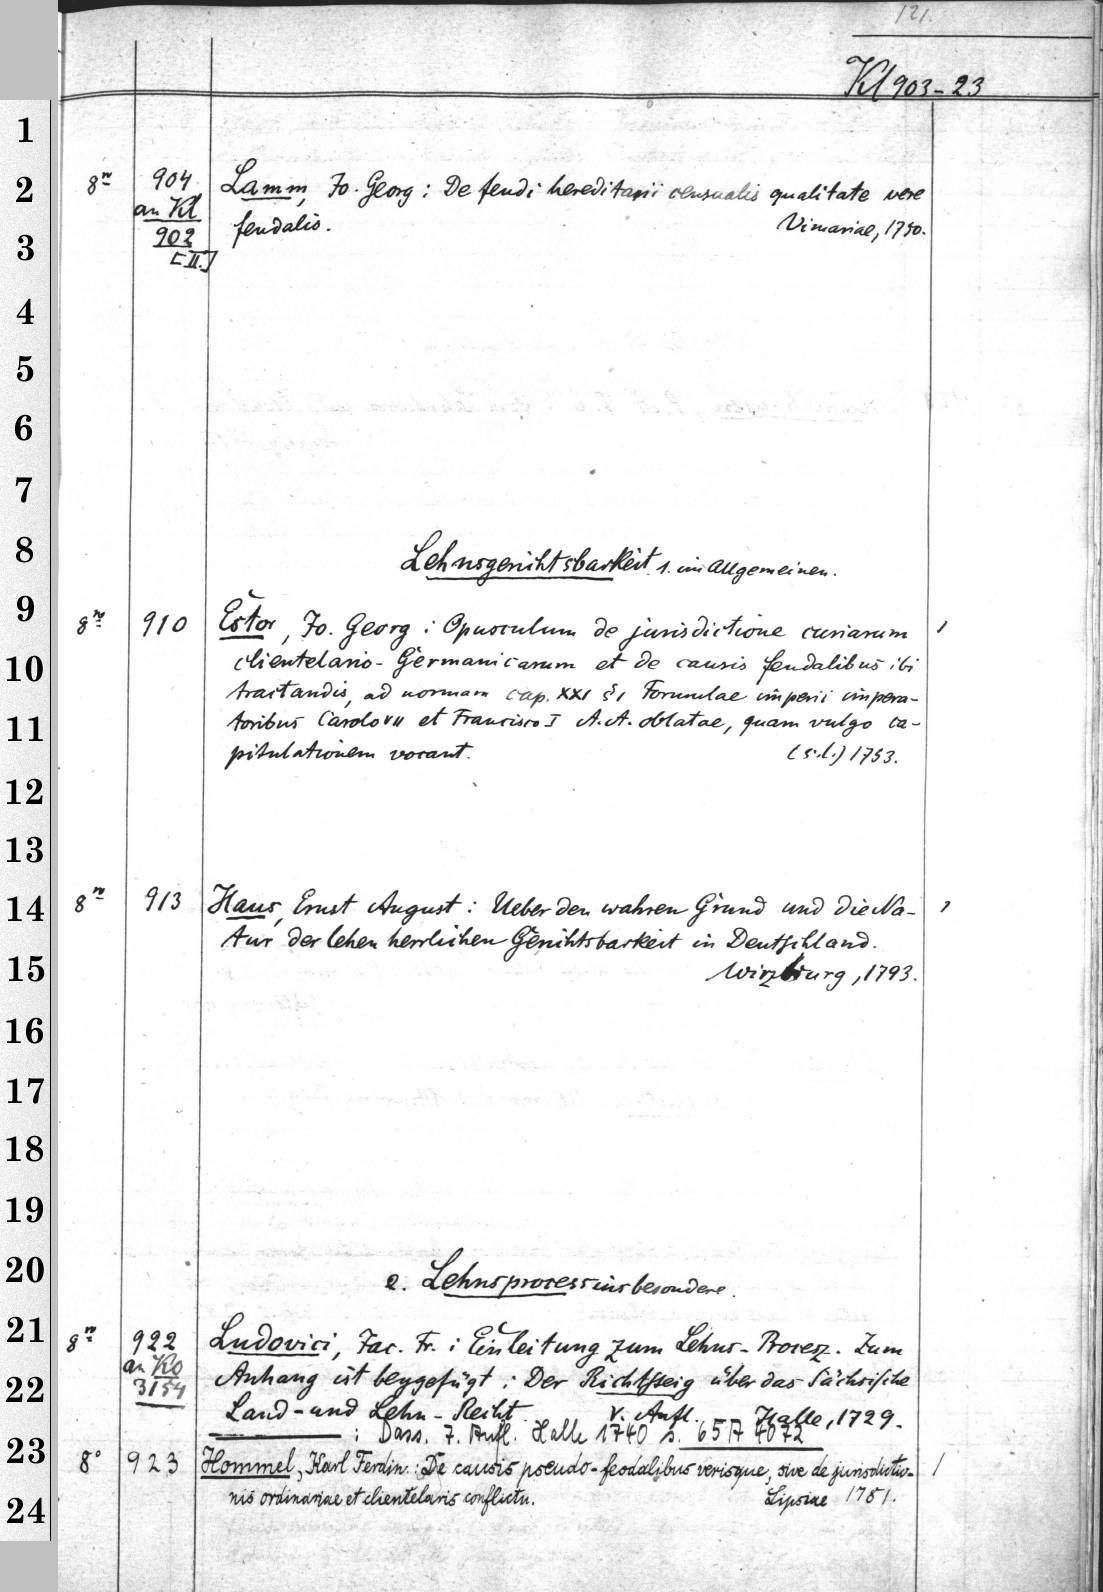 121.
Kl 903-23
8º 904 Lamm, Jo. Georg: De feudi hereditarii censualis qualitate vere
an Kl
902 feudalis. Vimariae, 1750.
[II.]
Lehnsgerichtsbarkeit 1. im Allgemeinen.
8º 910 Estor, Jo. Georg: Opusculum de jurisdictione curiarum 1
clientelario-Germanicarum et de causis feudalibus ibi
tractandis, ad normam cap. XXI §1 Formulae imperii impera-
toribus Carolo VII et Francisco I A.A. oblatae, quam vulgo ca-
pitulationem vocant. (s.l.) 1753.
8º 913 Haus, Ernst August: Ueber den wahren Grund und die Na- 1
tur der lehenherrlichen Gerichtsbarkeit in Deutschland.
Wirzburg, 1793.
2. Lehnsprocess insbesondere.
8º 922 Ludovici, Jac. Fr.: Einleitung zum Lehns-Procesz. Zum
an Ko Anhang ist beygefügt: Der Richtsteig über das Sächsische
3154 Land- und Lehn-Recht. V. Aufl. Halle, 1729.
: Dass. 7. Aufl. Halle 1740 s. 65 A 4072
8º 923 Hommel, Karl Ferdin.: De causis pseudo-feodalibus verisque, sive de jurisdictio- 1
nis ordinariae et clientelaris conflictu. Lipsiae 1751.
1
2
3
4
5
6
7
8
9
10
11
12
13
14
15
16
17
18
19
20
21
22
23
24